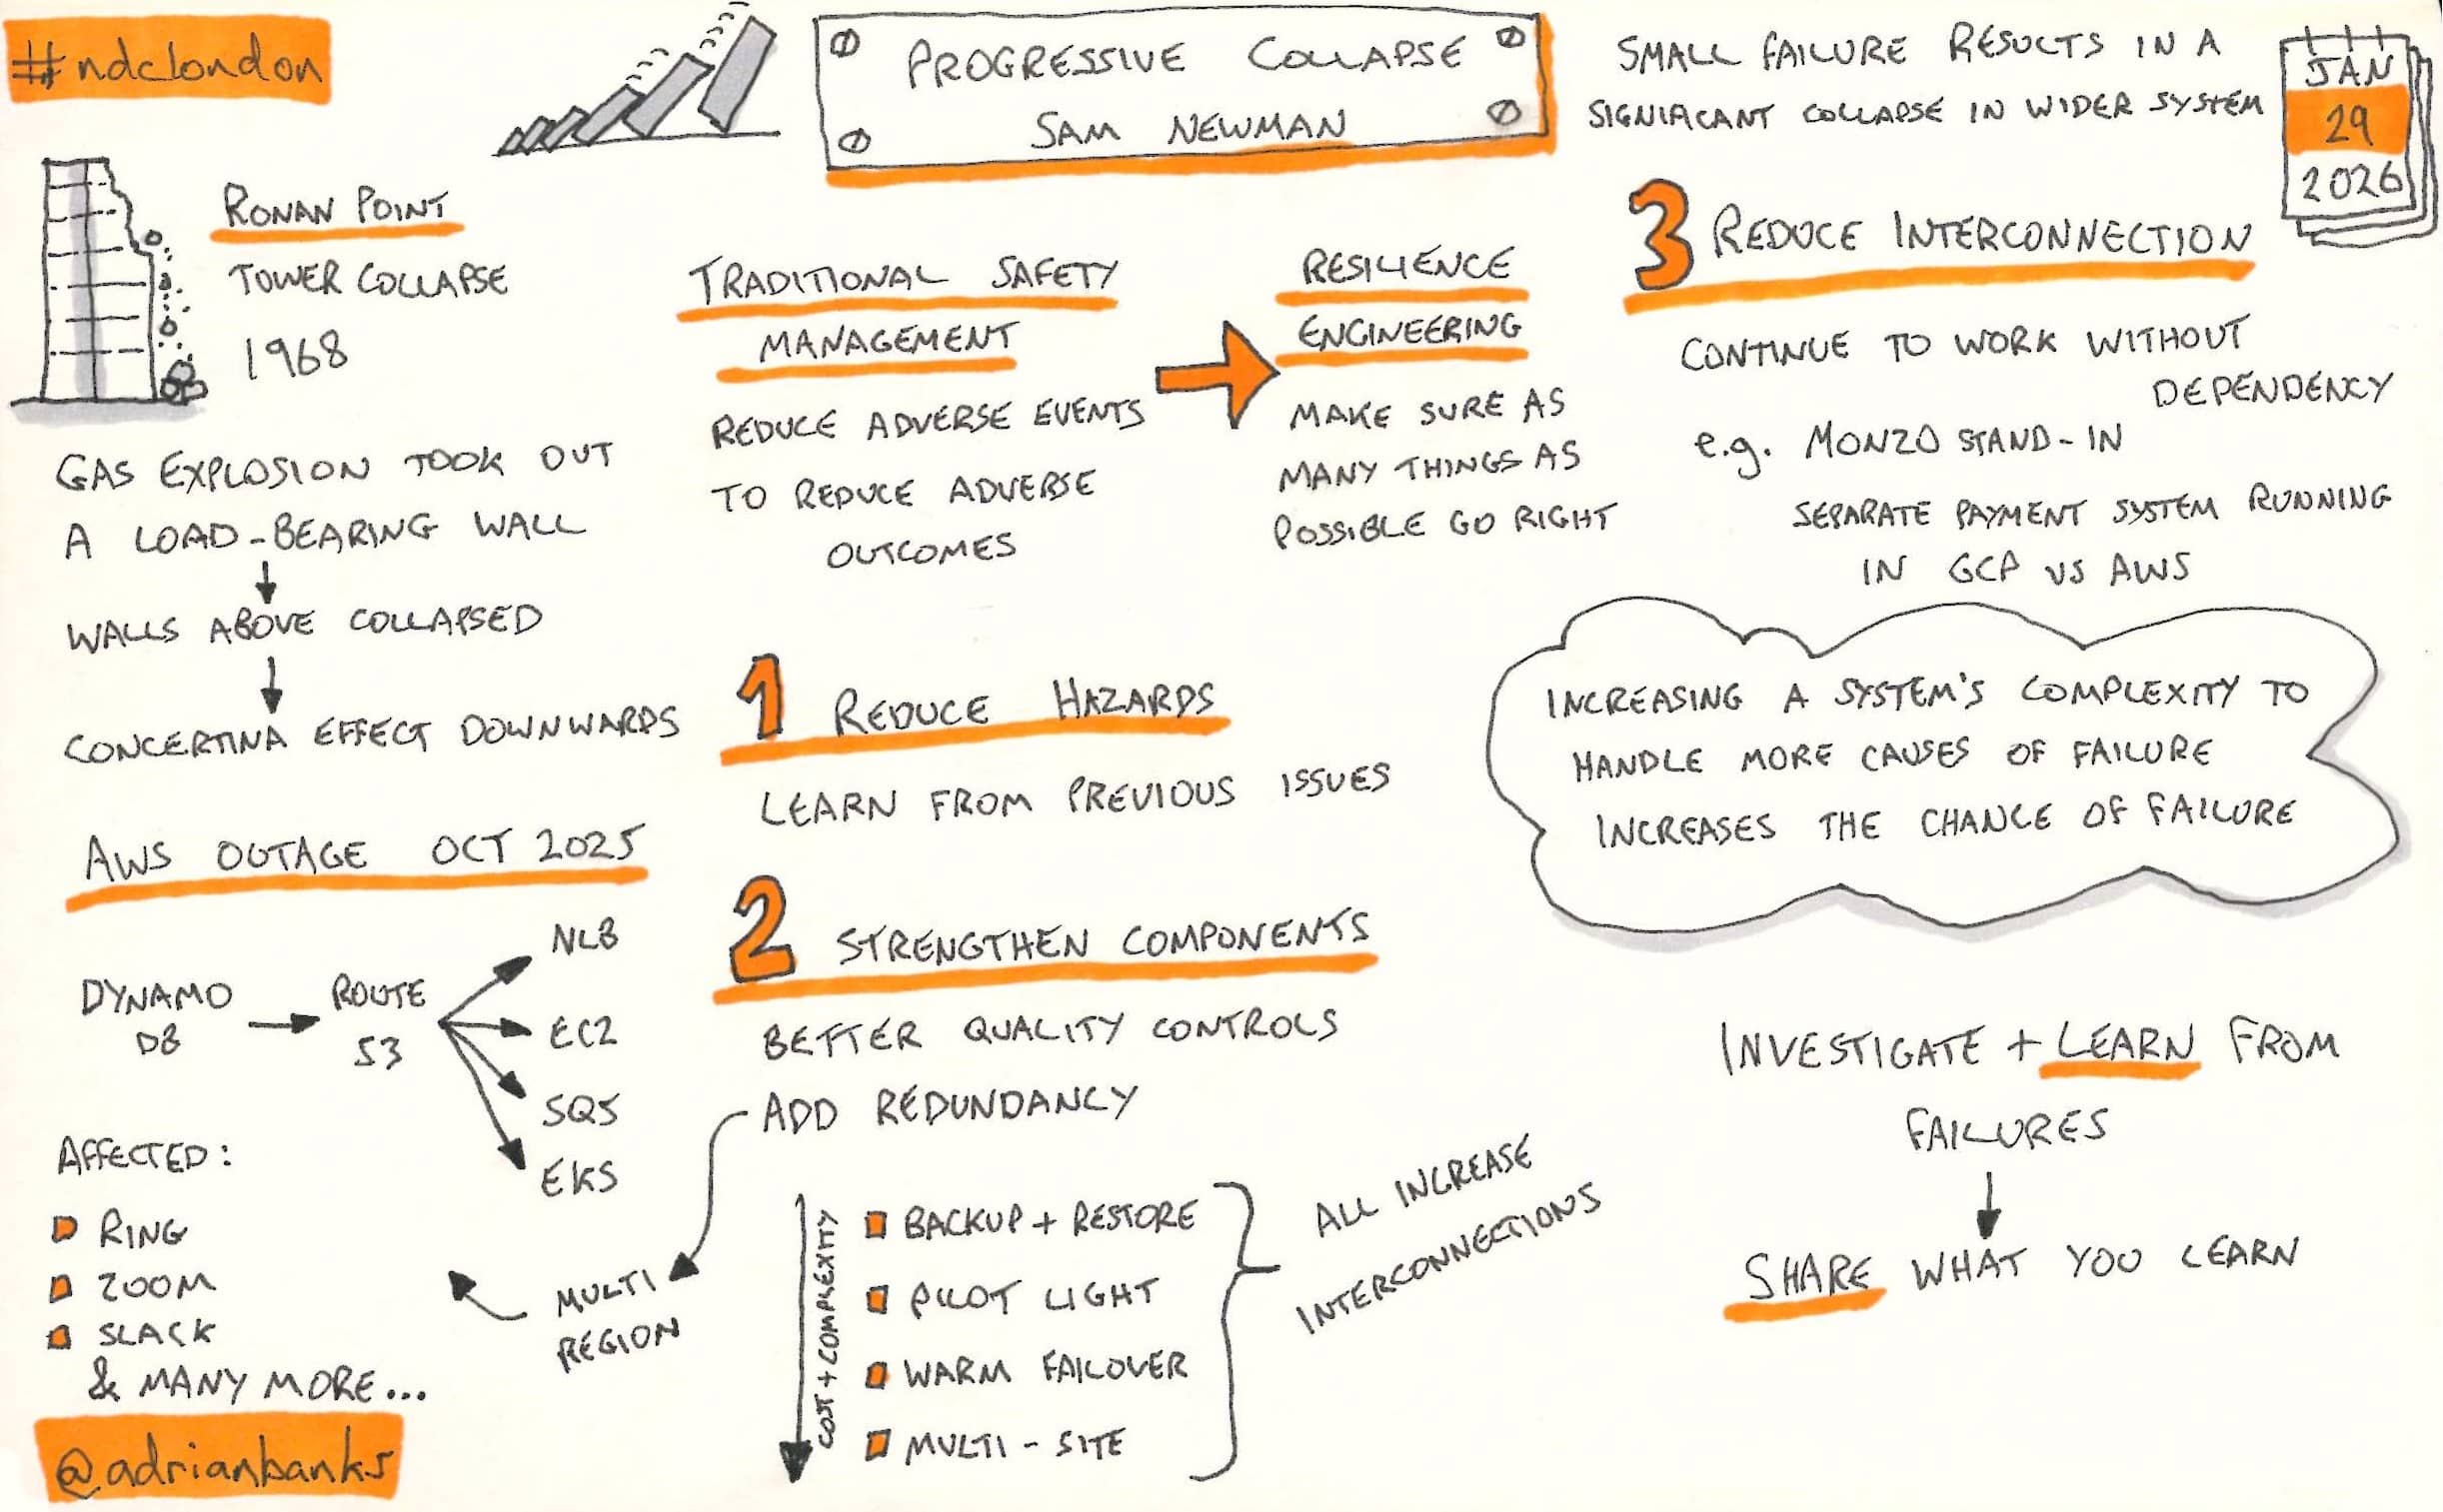 #ndclondon
PROGRESSIVE COLLAPSE
SAM NEWMAN
SMALL FAILURE RESULTS IN A
SIGNIFICANT COLLAPSE IN WIDER SYSTEM
JAN
29
2026
RONAN POINT
TOWER COLLAPSE
1968
GAS EXPLOSION TOOK OUT
A LOAD-BEARING WALL
WALLS ABOVE COLLAPSED
CONCERTINA EFFECT DOWNWARDS
AWS OUTAGE OCT 2025
DYNAMO
DB
ROUTE
53
NLB
EC2
SQS
EKS
AFFECTED:
RING
ZOOM
SLACK
& MANY MORE...
@adrianbanks
TRADITIONAL SAFETY
MANAGEMENT
REDUCE ADVERSE EVENTS
TO REDUCE ADVERSE
OUTCOMES
RESILIENCE
ENGINEERING
MAKE SURE AS
MANY THINGS AS
POSSIBLE GO RIGHT
1 REDUCE HAZARDS
LEARN FROM PREVIOUS ISSUES
2 STRENGTHEN COMPONENTS
BETTER QUALITY CONTROLS
ADD REDUNDANCY
MULTI
REGION
COST + COMPLEXITY
BACKUP + RESTORE
PILOT LIGHT
WARM FAILOVER
MULTI-SITE
ALL INCREASE
INTERCONNECTIONS
3 REDUCE INTERCONNECTION
CONTINUE TO WORK WITHOUT
DEPENDENCY
e.g. MONZO STAND-IN
SEPARATE PAYMENT SYSTEM RUNNING
IN GCP VS AWS
INCREASING A SYSTEM'S COMPLEXITY TO
HANDLE MORE CAUSES OF FAILURE
INCREASES THE CHANCE OF FAILURE
INVESTIGATE + LEARN FROM
FAILURES
SHARE WHAT YOU LEARN